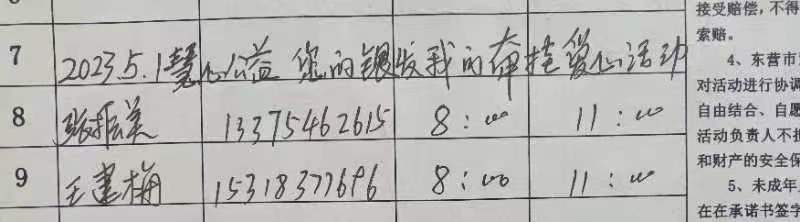 7 2023.5.1慧心公益 您的银发我的牵挂爱心活动
8 张振美 13375462615 8:00 11:00
9 王建梅 15318377696 8:00 11:00
接受赔偿,不得
索赔。
4、东营市
对活动进行协调
自由结合、自愿
活动负责人不担
和财产的安全保
5、未成年
在在承诺书签字